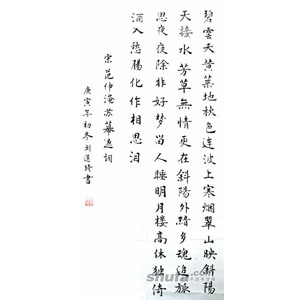 碧雲天黃葉地秋色連波上寒烟翠山映斜陽
天接水芳草無情更在斜陽外黯鄉魂追旅
思夜夜除非好夢留人睡明月樓高休獨倚
酒入愁腸化作相思淚
宋范仲淹苏幕遮詞
庚寅年初冬刘琦書